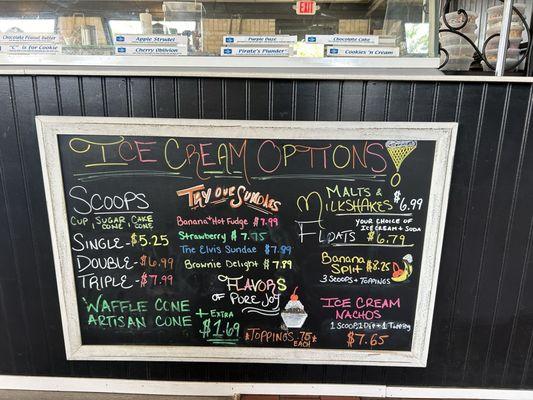 EXIT
Chocolate Peanut Butter
Apple Strudel
Purple Pure
Chocolate Cake
"C" is for Cookie
Cherry Oborski
Pirate's Plunder
Cookies 'n Cream
ICE CREAM OPTIONS
SCOOPS
CUP / SUGAR CONE / CAKE CONE
SINGLE - $5.25
DOUBLE - $6.99
TRIPLE - $7.99
WAFFLE CONE
ARTISAN CONE
+ EXTRA
$1.69
TRY OUR SUNDAES
BANANA + HOT FUDGE $7.99
STRAWBERRY $7.75
THE ELVIS SUNDAE $7.89
BROWNIE DELIGHT $7.89
FLAVORS
OF PURE JOY
*TOPPINGS .75
EACH*
MALTS &
MILKSHAKES $6.99
YOUR CHOICE OF
ICE CREAM + SODA
FLOATS $6.79
BANANA
SPLIT $8.25
3 SCOOPS + TOPPINGS
ICE CREAM
NACHOS
1 SCOOP 1 DIP + 1 TOPPING
$7.65